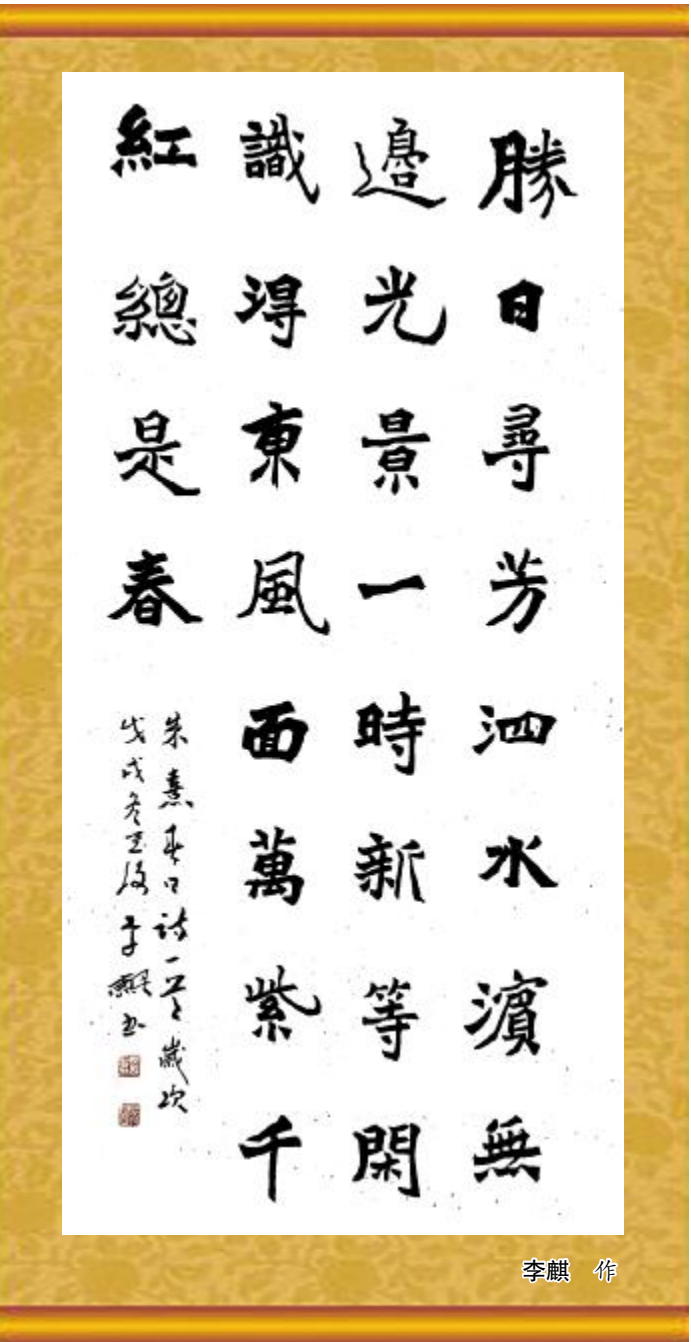 勝日尋芳泗水濱無
邊光景一時新等閑
識得東風面萬紫千
紅總是春
朱熹春日詩一首歲次
戊戌冬至後李麒書
李麒 作